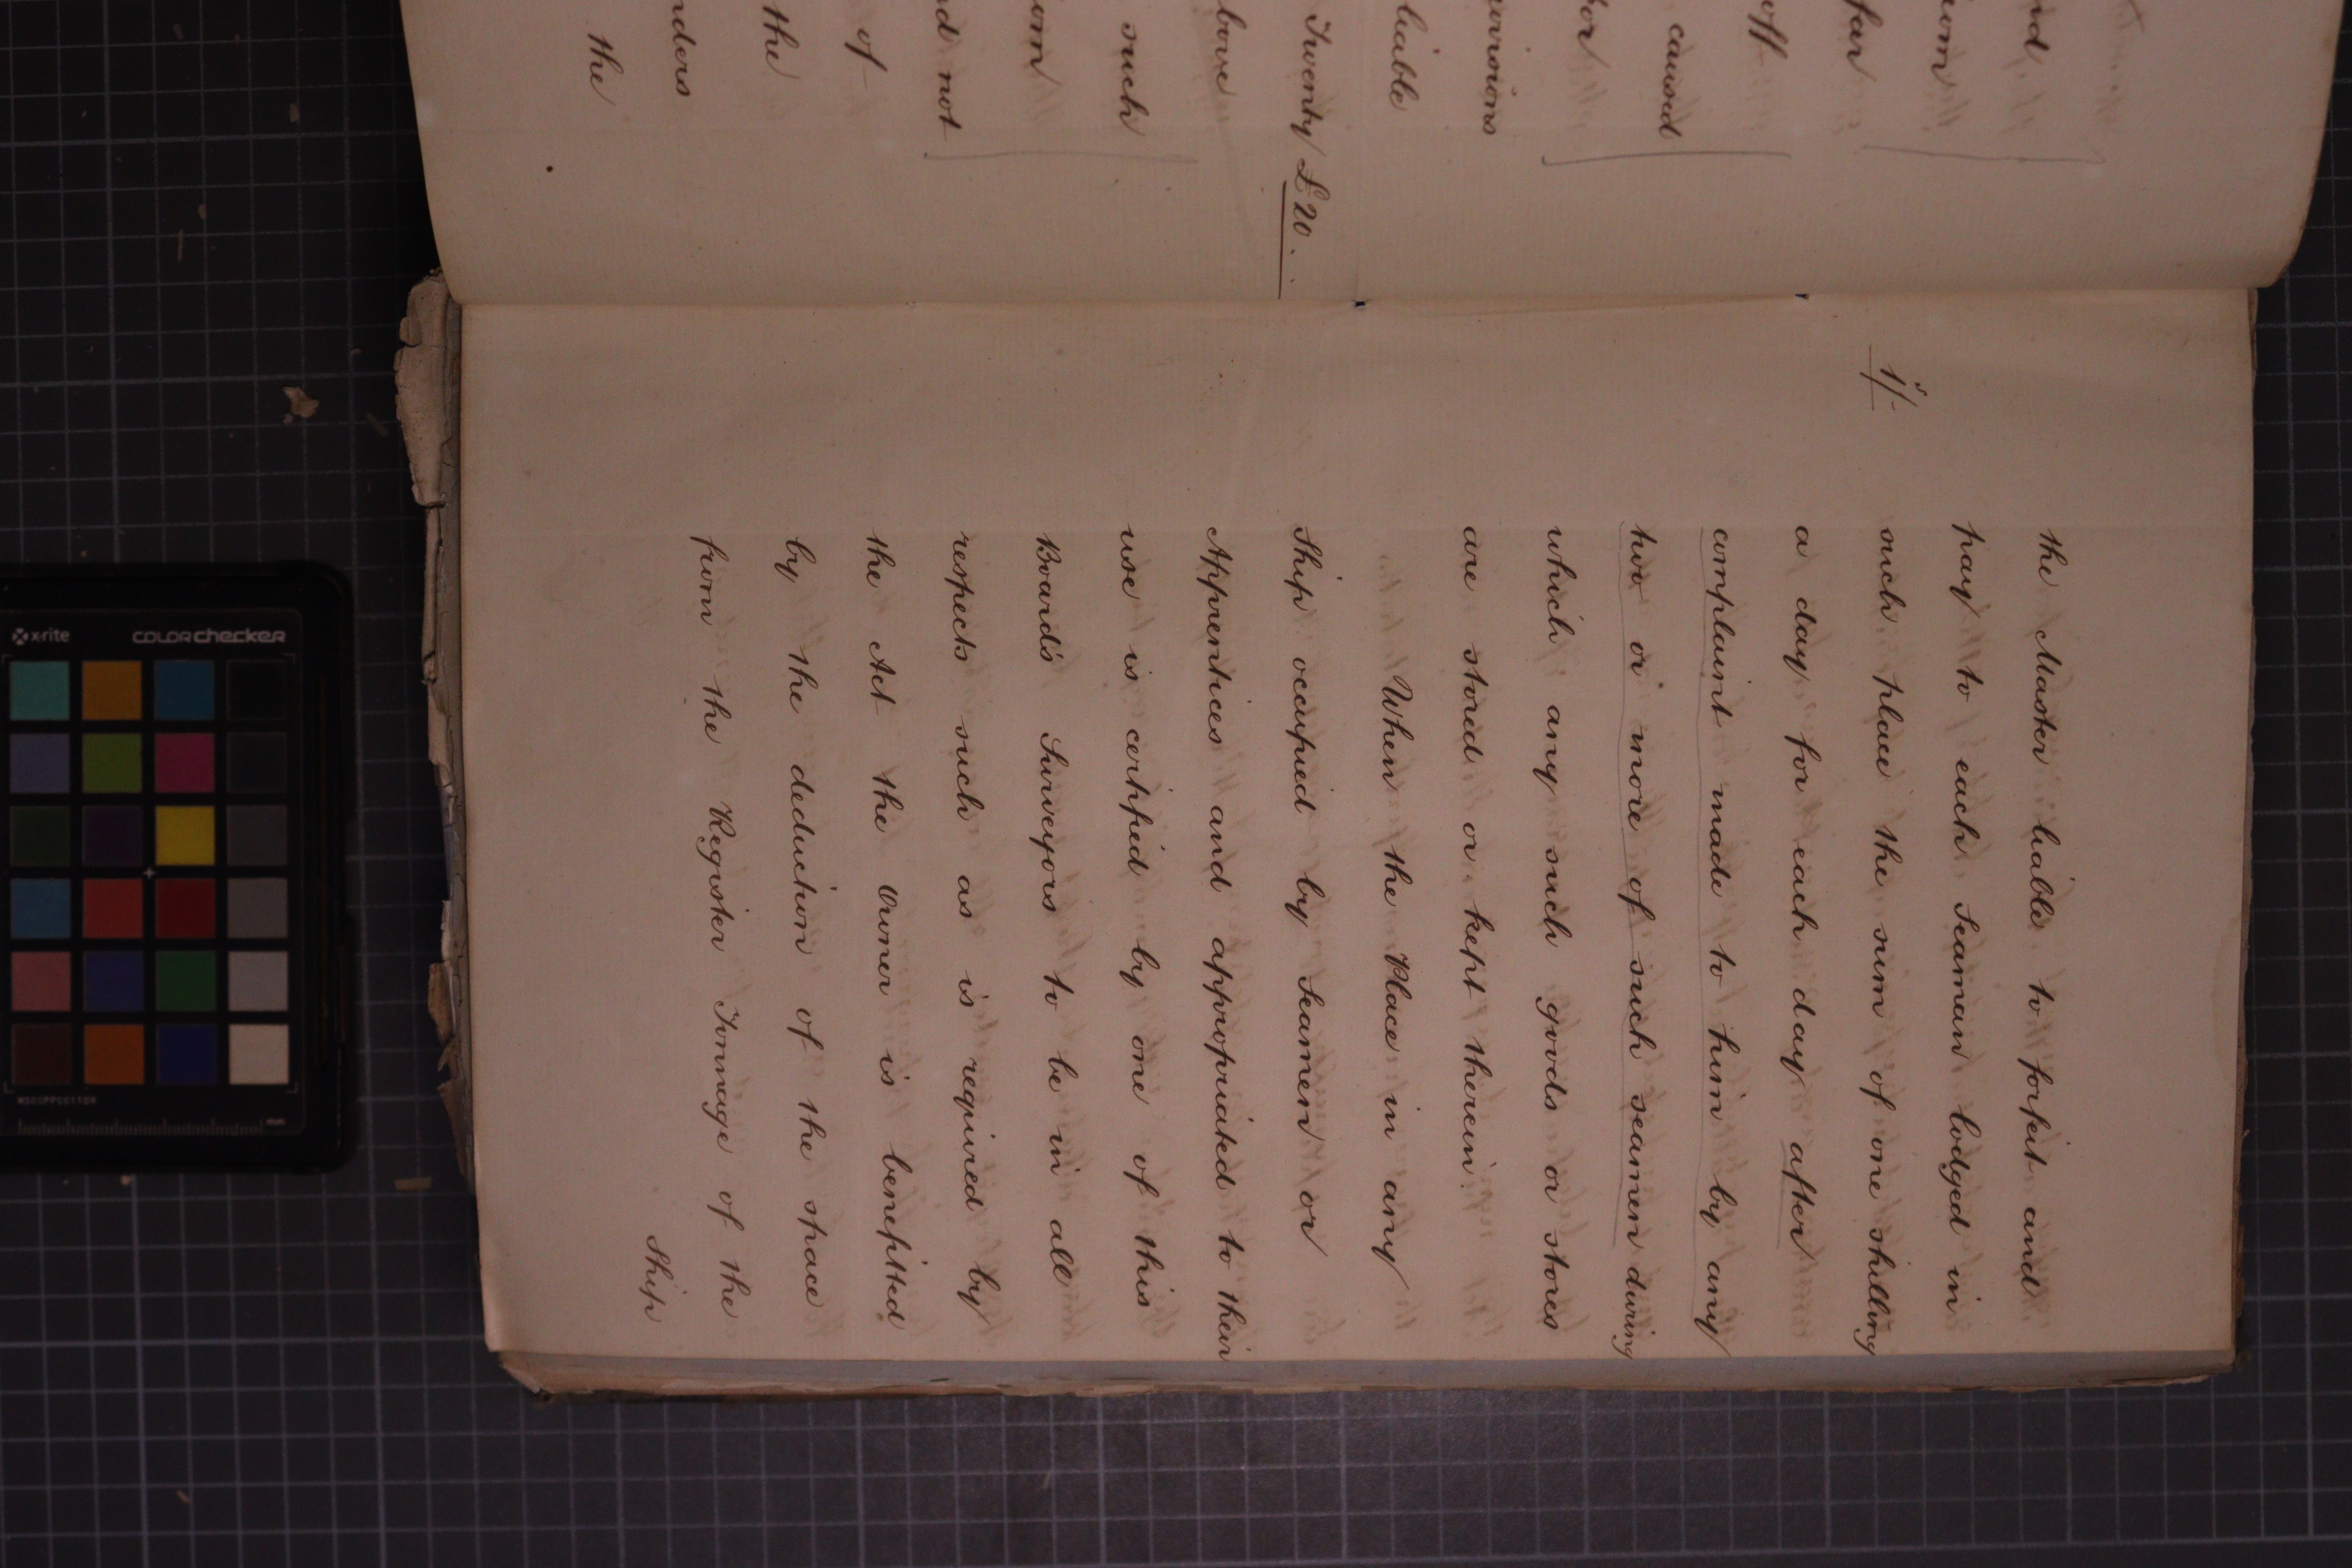 nd
om
far
off
caused
for
provisions
liable
Twenty £20.
bove
such
om
nd not
of
the
nders
the
the Master liable to forfeit and
pay to each Seaman lodged in
1/- such place the sum of one shilling
a day for each day after
complaint made to him by any
two or more of such seamen during
which any such goods or stores
are stored or kept therein.
When the Place in any
Ship occupied by Seamen or
Apprentices and appropriated to their
use is certified by one of this
Board's Surveyors to be in all
respects such as is required by
the Act the owner is benefitted
by the deduction of the space
from the Register Tonnage of the
Ship
x-rite colorchecker
MSCCPPCC1109
mm